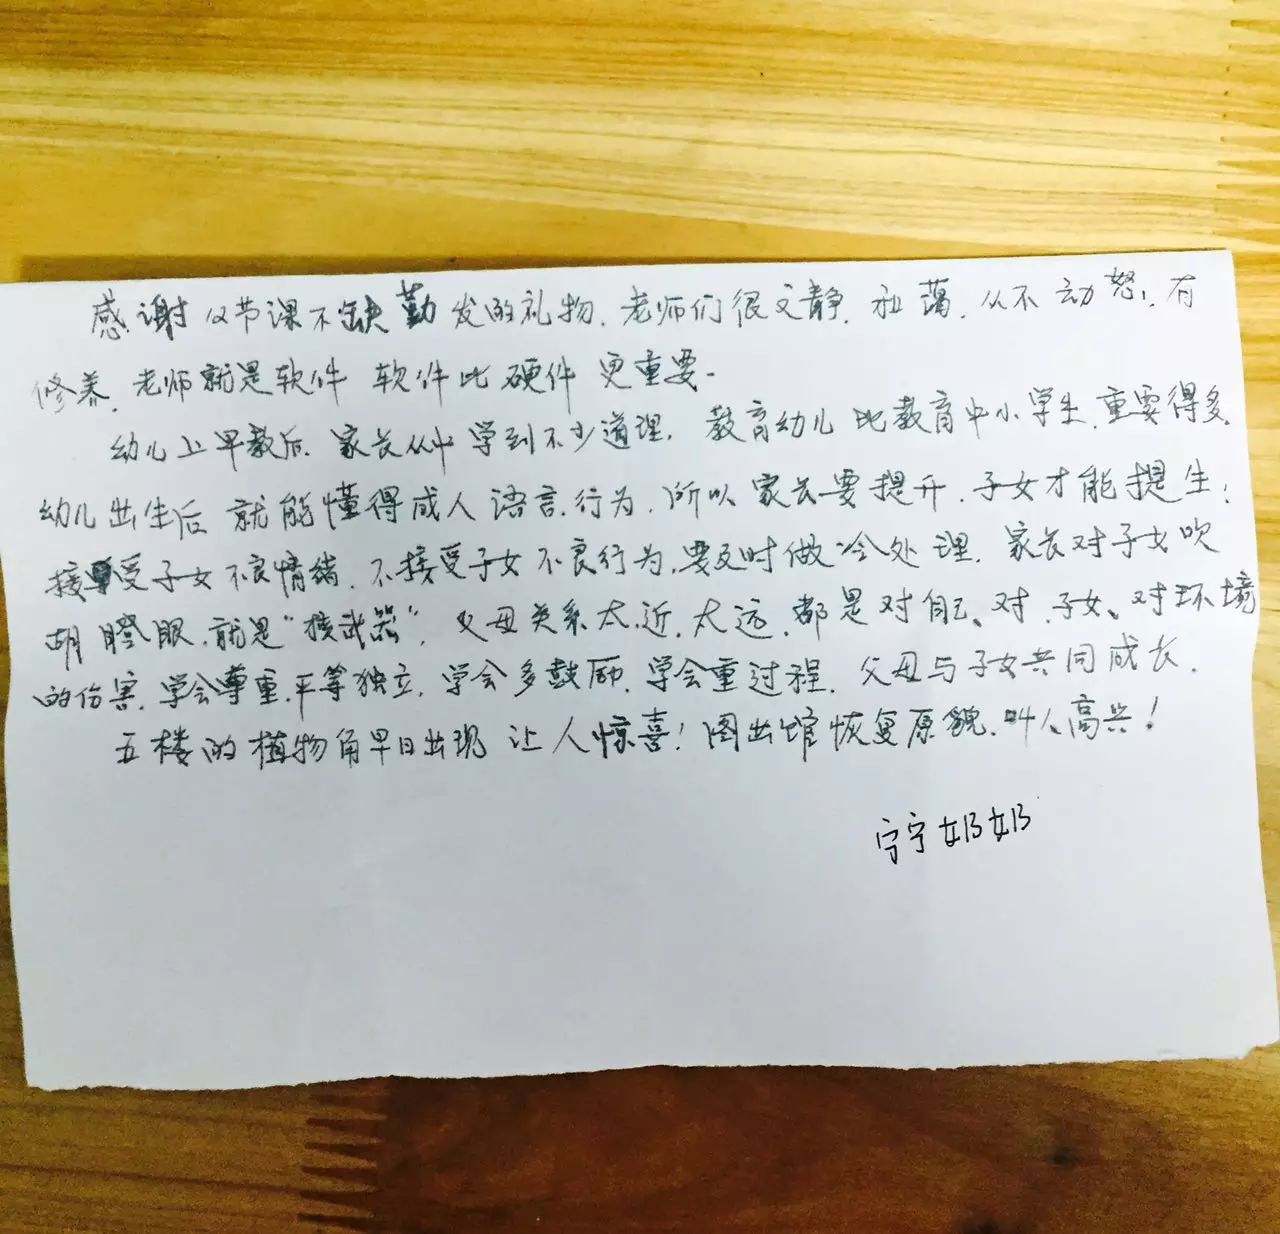 感谢 节课不缺勤发的礼物. 老师们很文静. 和蔼. 从不动怒. 有
修养. 老师就是软件 软件比硬件更重要.
幼儿上早教后. 家长从中学到不少道理. 教育幼儿比教育中小学生.重要得多.
幼儿出生后就能懂得成人语言.行为. 所以家长要提升. 子女才能提生:
接受子女不良情绪. 不接受子女不良行为.要及时做冷处理. 家长对子女吹
胡瞪眼.就是"核武器". 父母关系太近.太远.都是对自己、对子女、对环境
的伤害.学会尊重.平等独立.学会多鼓励.学会重过程. 父母与子女共同成长.
五楼的植物角早日出现 让人惊喜! 图出馆恢复原貌.叫人高兴!
宁宁奶奶